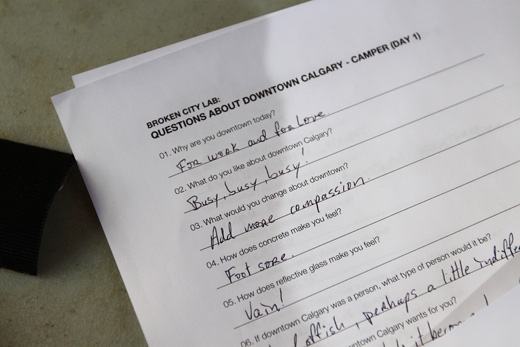 BROKEN CITY LAB:
QUESTIONS ABOUT DOWNTOWN CALGARY - CAMPER (DAY 1)
01. Why are you downtown today?
For work and for love
02. What do you like about downtown Calgary?
Busy, busy, busy!
03. What would you change about downtown?
Add more compassion.
04. How does concrete make you feel?
Foot sore.
05. How does reflective glass make you feel?
Vain!
06. If downtown Calgary was a person, what type of person would it be?
offish, perhaps a little
downtown Calgary wants for you?
it